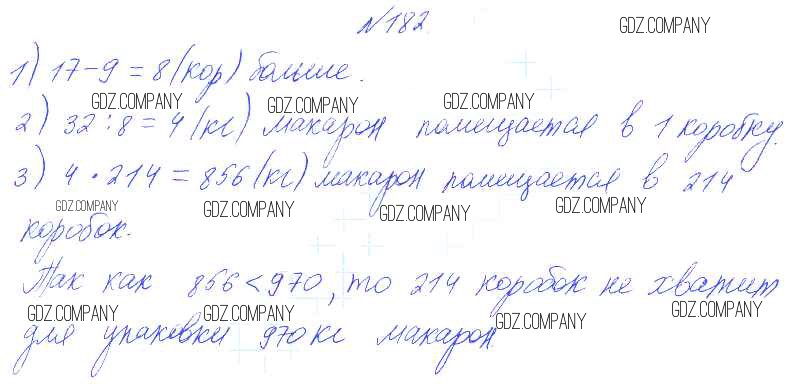 №182. GDZ.COMPANY
1) 17-9=8 (кор) больше.
GDZ.COMPANY GDZ.COMPANY GDZ.COMPANY
2) 32:8=4 (кг) макарон помещается в 1 коробку.
3) 4·214=856 (кг) макарон помещается в 214
GDZ.COMPANY GDZ.COMPANY GDZ.COMPANY GDZ.COMPANY
коробок.
Так как 856<970, то 214 коробок не хватит
GDZ.COMPANY GDZ.COMPANY GDZ.COMPANY GDZ.COMPANY
для упаковки 970 кг макарон.